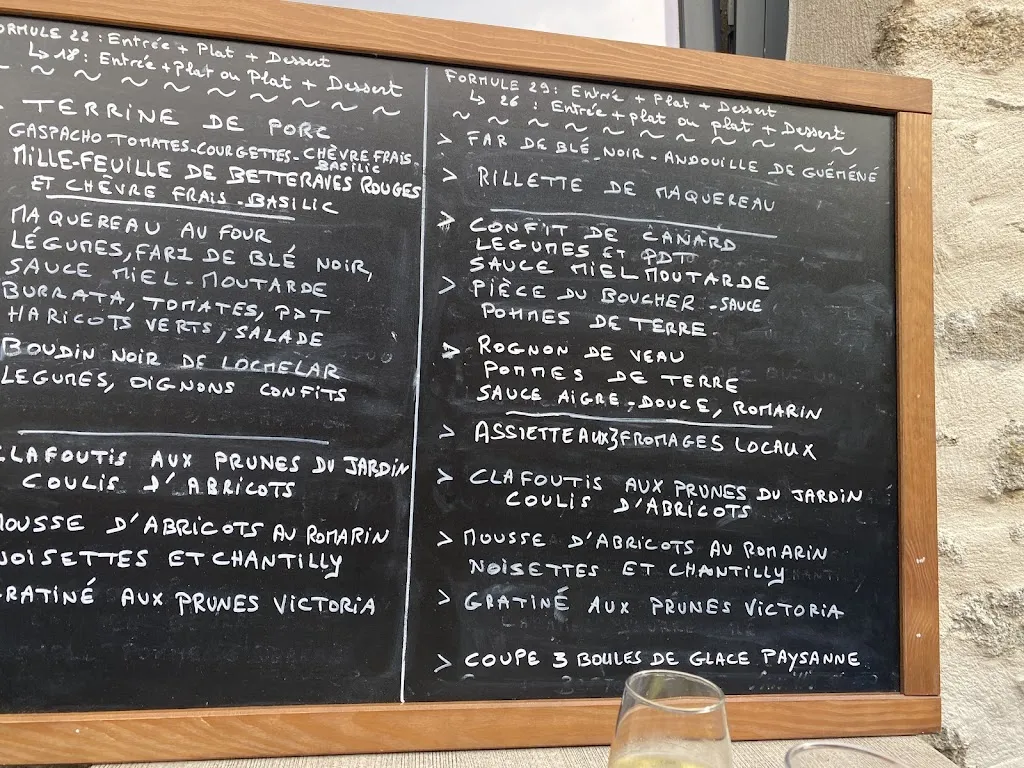 FORMULE 22 : Entrée + Plat + Dessert
↳ 18 : Entrée + Plat ou Plat + Dessert
TERRINE DE PORC
GASPACHO TOMATES-COURGETTES-CHÈVRE FRAIS-
BASILIC
MILLE-FEUILLE DE BETTERAVES ROUGES
ET CHÈVRE FRAIS-BASILIC
MAQUEREAU AU FOUR
LÉGUMES, FARZ DE BLÉ NOIR,
SAUCE MIEL-MOUTARDE
BURRATA, TOMATES, PDT
HARICOTS VERTS, SALADE
BOUDIN NOIR DE LOCMELAR
LEGUMES, OIGNONS CONFITS
CLAFOUTIS AUX PRUNES DU JARDIN
COULIS D'ABRICOTS
MOUSSE D'ABRICOTS AU ROMARIN
NOISETTES ET CHANTILLY
GRATINÉ AUX PRUNES VICTORIA
FORMULE 29 : Entrée + Plat + Dessert
↳ 26 : Entrée + plat ou plat + Dessert
> FAR DE BLÉ NOIR - ANDOUILLE DE GUÉMÉNÉ
> RILLETTE DE MAQUEREAU
> CONFIT DE CANARD
LEGUMES ET PDT
SAUCE MIEL MOUTARDE
> PIÈCE DU BOUCHER - SAUCE
POMMES DE TERRE
> ROGNON DE VEAU
POMMES DE TERRE
SAUCE AIGRE-DOUCE, ROMARIN
> ASSIETTE AUX 3 FROMAGES LOCAUX
> CLAFOUTIS AUX PRUNES DU JARDIN
COULIS D'ABRICOTS
> MOUSSE D'ABRICOTS AU ROMARIN
NOISETTES ET CHANTILLY
> GRATINÉ AUX PRUNES VICTORIA
> COUPE 3 BOULES DE GLACE PAYSANNE